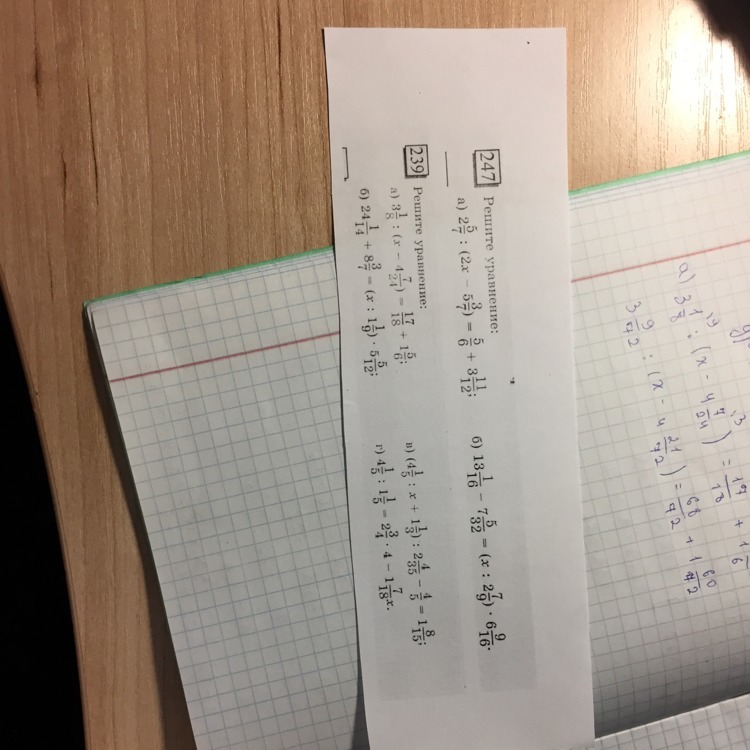 247 Решите уравнение:
а) 2 5/7 : (2x − 5 3/7) = 5/6 + 3 11/12;
б) 13 1/16 − 7 5/32 = (x : 2 7/9) · 6 9/16.
239 Решите уравнение:
а) 3 1/8 : (x − 4 7/24) = 17/18 + 1 5/6;
б) 24 1/14 + 8 3/7 = (x : 1 1/9) · 5 5/12;
в) (4 1/5 : x + 1 1/3) : 2 4/35 − 4/5 = 1 8/15;
г) 4 1/5 : 1 1/5 = 2 3/4 · 4 − 1 7/18 x.
а) 3 1/8 : (x − 4 7/24) = 17/18 + 1 /6
3 9/72 : (x − 4 21/72) = 68/72 + 1 60/72